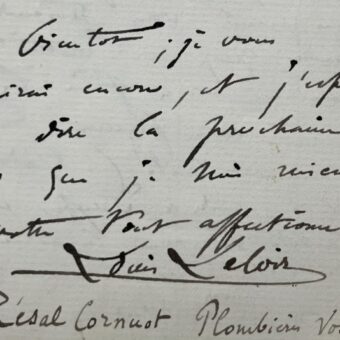 Bientot, je vous
irai encore, et j'esp
dire la prochain
que je suis mieu
Votre tout affectionn
Louis Leloir
Résal Cornuot Plombières Vo